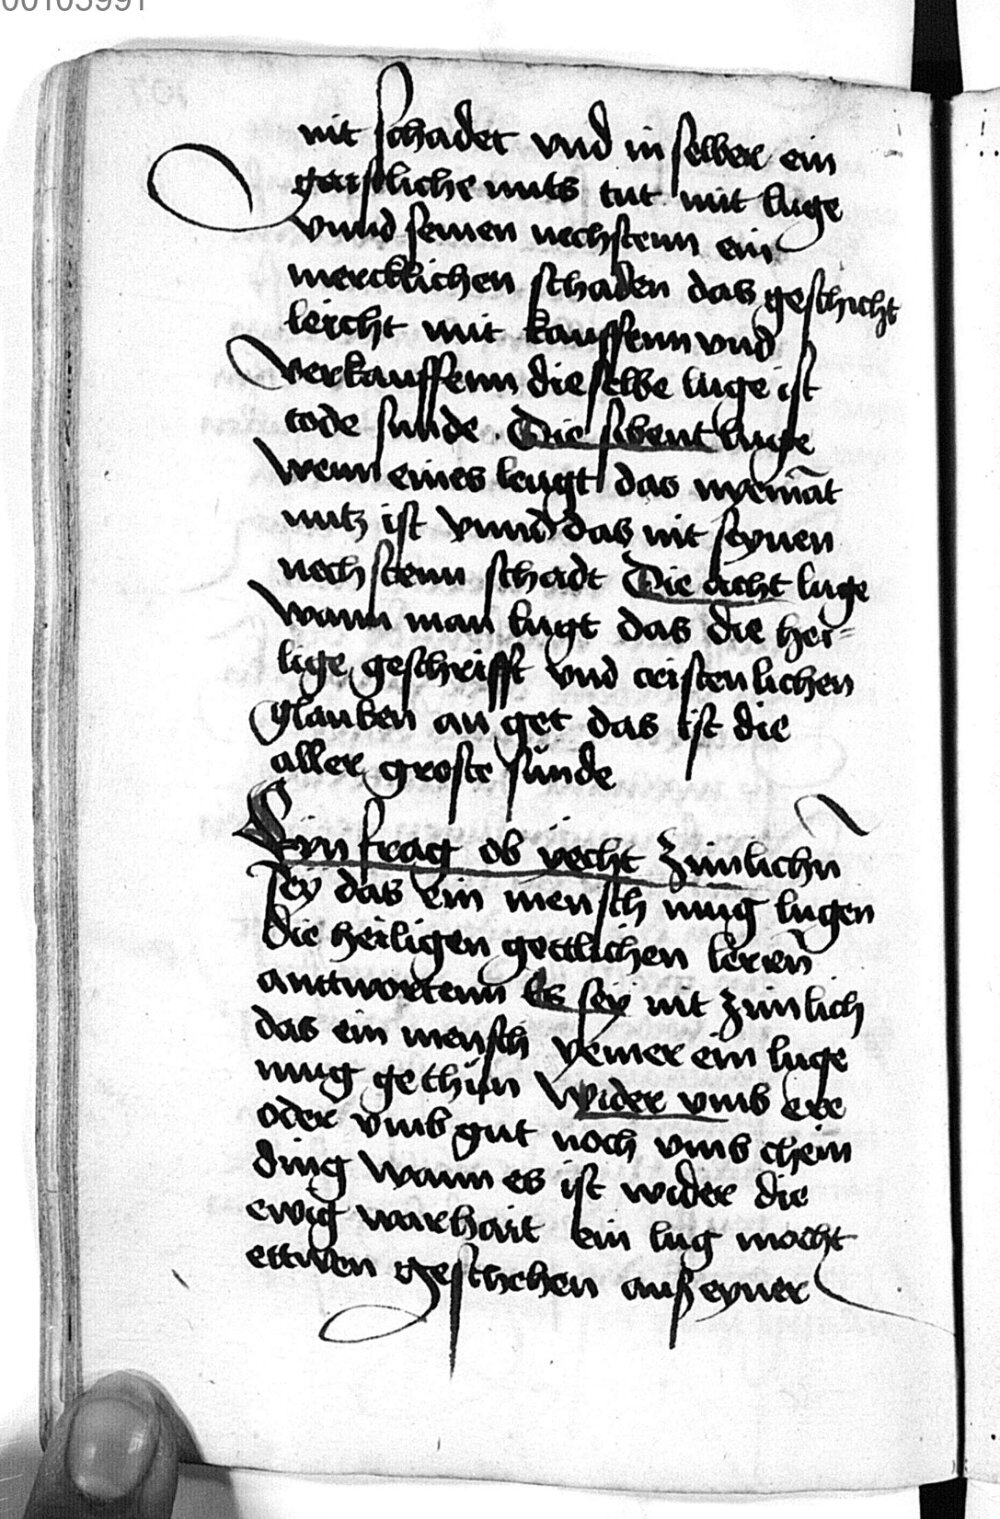 00103991
nit schadet vnd in selber ein
geistliche nuts tut mit luge
vnnd seinen nechstenn ein
mercklichen schaden das geschicht
leicht mit kauffenn vnd
verkauffenn die selbe luge ist
tode sunde . Die sibent luge
wenn eines leugt das nyemāt
nutz ist vnnd das nit seynen
nechstenn schadt Die acht luge
wann man lugt das die hei=
lige geschrifft vnd cristenlichen
glauben an get das ist die
aller groste sunde
Eyn frag ob yecht zimlichn
sey das ein mensch mug lugen
die heiligen gottlichen lerern̄
anttwortenn Es sey nit zimlich
das ein mensch yemer ein luge
mug gethun wider vmb ere
oder vmb gut noch vmb chein
ding wann es ist wider die
ewig warhait ein lug mocht
ettwen geschehen auß eyner